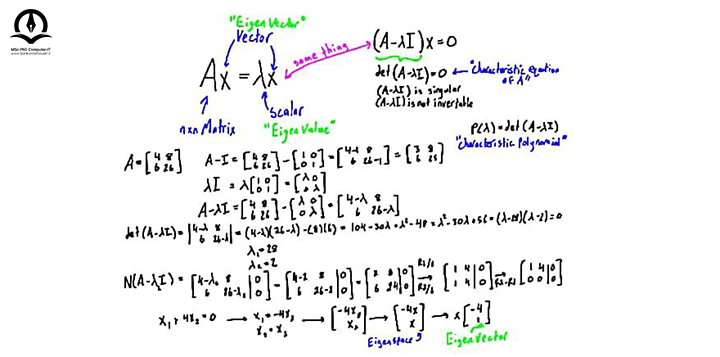 MSc PhD Computer IT
"EigenVector"
Vector
same thing
Ax = λx
(A-λI)x = 0
det(A-λI) = 0 ← "Characteristic equation of A"
(A-λI) is singular
(A-λI) is not invertable
nxn Matrix
Scalar
"EigenValue"
P(λ) = det(A-λI)
"Characteristic Polynomial"
A = [4 8; 6 26] A-I = [4 8; 6 26] - [1 0; 0 1] = [4-1 8; 6 26-1] = [3 8; 6 25]
λI = λ[1 0; 0 1] = [λ 0; 0 λ]
A-λI = [4 8; 6 26] - [λ 0; 0 λ] = [4-λ 8; 6 26-λ]
det(A-λI) = |4-λ 8; 6 26-λ| = (4-λ)(26-λ)-(8)(6) = 104-30λ+λ²-48 = λ²-30λ+56 = (λ-28)(λ-2) = 0
λ₁ = 28
λ₂ = 2
N(A-λI) = [4-λ₂ 8 |0; 6 26-λ₂ |0] = [4-2 8 |0; 6 26-2 |0] = [2 8 |0; 6 24 |0] → [1 4 |0; 1 4 |0] → R2-R1 [1 4 |0; 0 0 |0]
x₁ + 4x₂ = 0 → x₁ = -4x₂ x₂ = x₂ → [-4x₂; x₂] → [-4x; x] → x[-4; 1]
Eigenspace
EigenVector